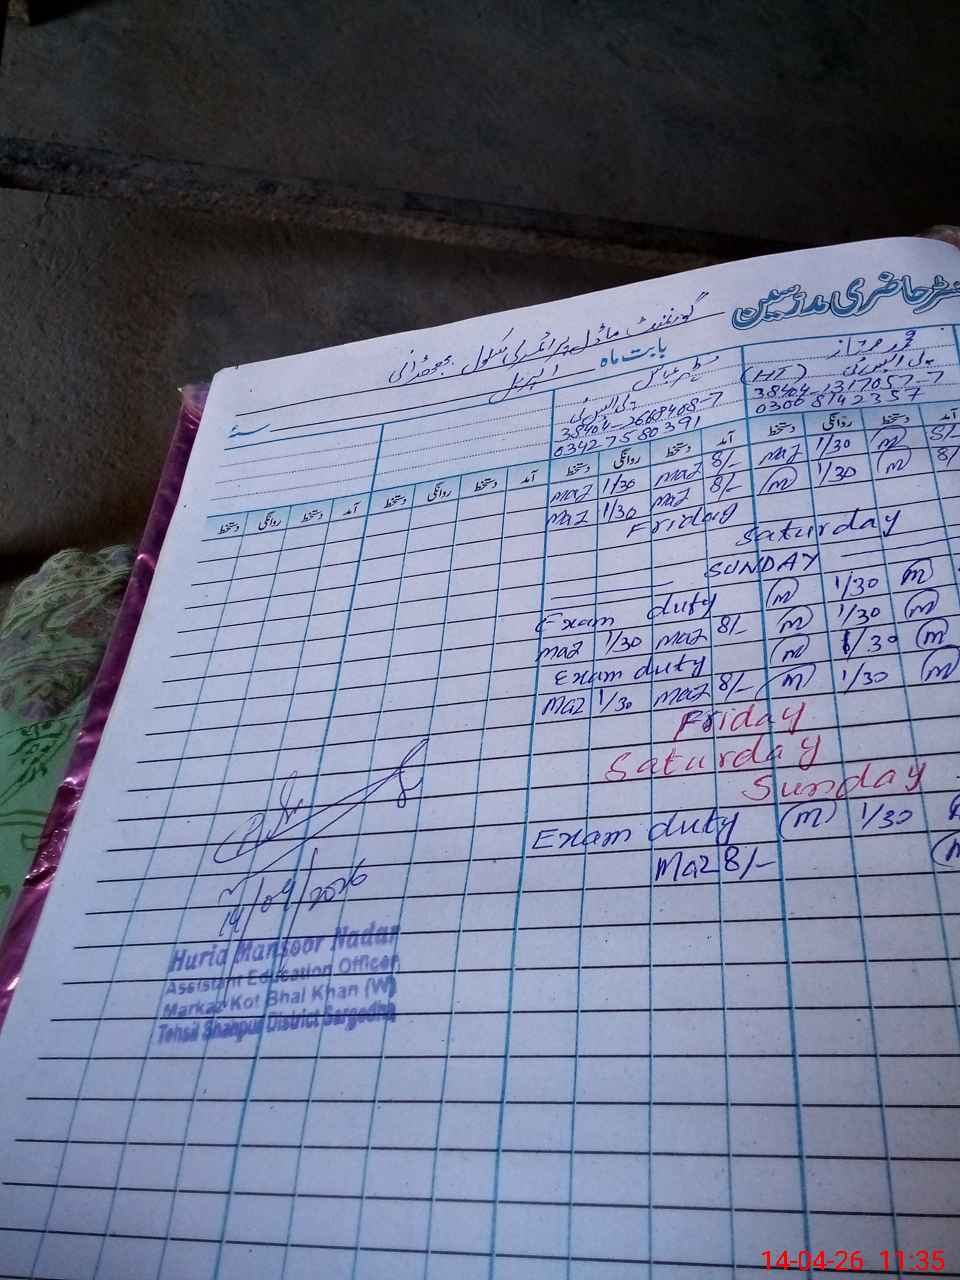 رجسٹر حاضری مدرسین
گورنمنٹ ماڈل پرائمری سکول
بابت ماہ اپریل
(HT)
38404-1317057-7
03068142357
38404-2668408-7
03427580391
دستخط روانگی دستخط آمد دستخط روانگی دستخط آمد دستخط روانگی دستخط آمد دستخط روانگی دستخط آمد
maz 1/30 maz 8/- maz 1/30 m 8/-
maz 1/30 maz 8/- m 1/30 m 8/
Friday
Saturday
SUNDAY
Exam duty m 1/30 m
maz 1/30 maz 8/- m 1/30 m
Exam duty m 1/30 m
Maz 1/30 maz 8/- m 1/30 m
Friday
Saturday
Sunday
Exam duty m 1/30
Maz 8/-
14/04/2026
Huria Mansoor Nadar
Assistant Education Officer
Markaz Kot Bhai Khan (W)
Tehsil Shahpur District Sargodha
14-04-26 11:35